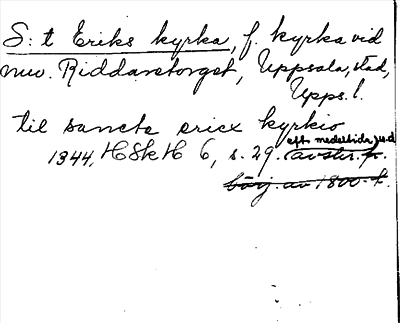 S:t Eriks kyrka, f. kyrka vid
nuv. Riddaretorget, Uppsala, stad,
Upps. l.
til sancte ericx kyrkio
eft. medeltida
1344, HSkH 6, s. 29. avskr. fr.
börj. av 1800-t.